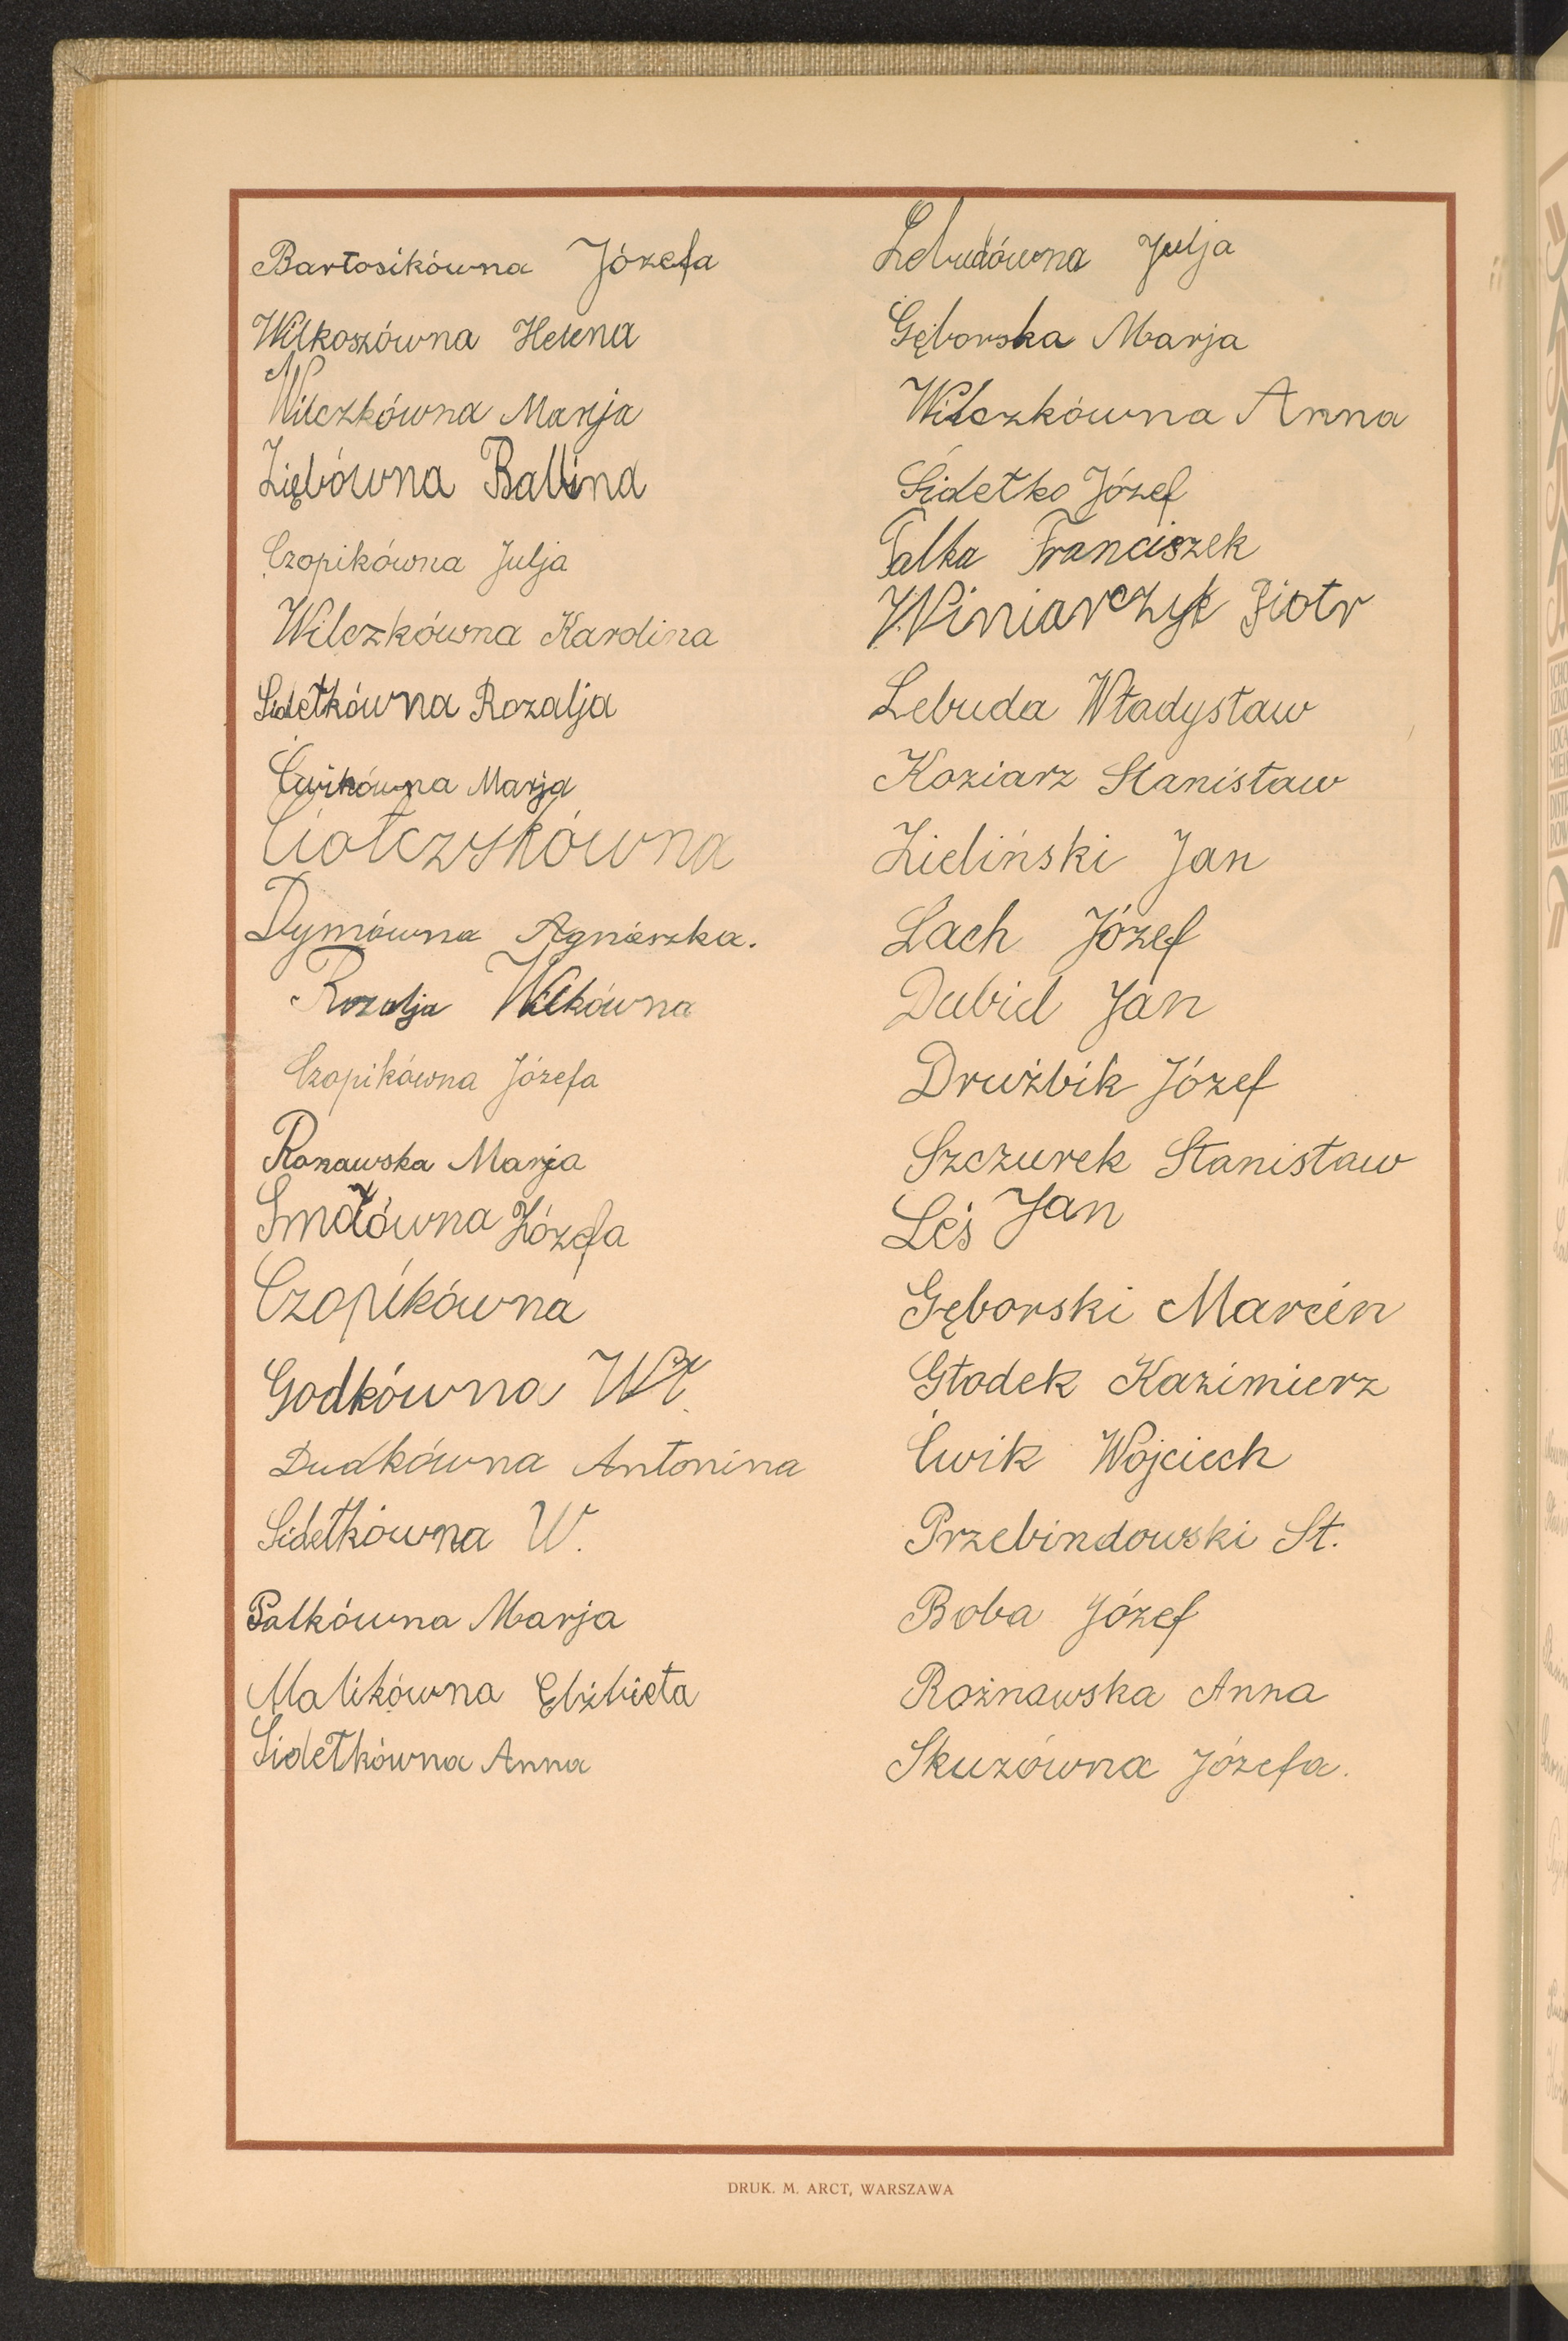 Bartosikówna Józefa
Wilkoszówna Helena
Wilczkówna Marja
Ziębówna Balbina
Czopikówna Julja
Wilczkówna Karolina
Sidełkówna Rozalja
Ćwikówna Marja
Ciołczykówna
Dymówna Agnieszka.
Rozalja Wilkówna
Czopikówna Józefa
Roznawska Marja
Józefa
Czopikówna
Godkówna Wł.
Dudkówna Antonina
Sidełkówna W.
Palkówna Marja
Malikówna Elżbieta
Sidełkówna Anna
Lebudówna Julja
Gęborska Marja
Wilczkówna Anna
Sidełko Józef
Palka Franciszek
Winiarczyk Piotr
Lebuda Władysław
Koziarz Stanisław
Zieliński Jan
Lach Józef
Dubiel Jan
Drużbik Józef
Szczurek Stanisław
Leś Jan
Gęborski Marcin
Głodek Kazimierz
Ćwik Wojciech
Przebindowski St.
Boba Józef
Rożnawska Anna
Skuzówna Józefa.
DRUK. M. ARCT, WARSZAWA